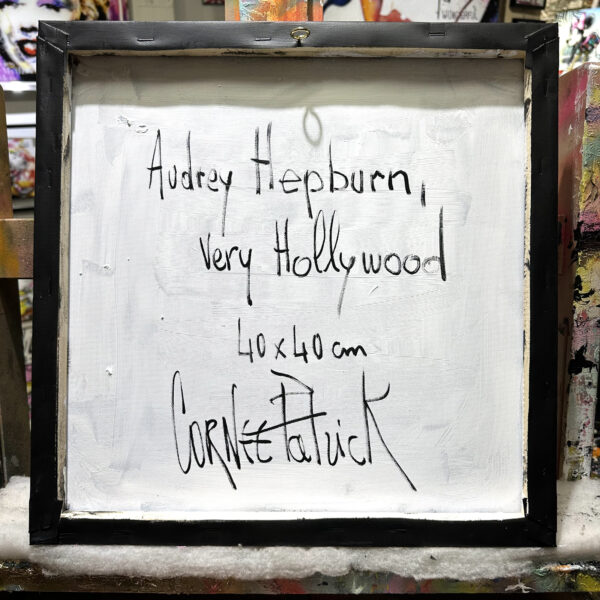 Audrey Hepburn,
very Hollywood
40 x 40 cm
CORNÉE PatricK